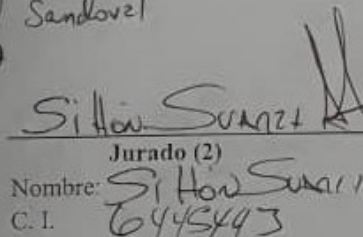 Sandoval
Simón Suarez
Jurado (2)
Nombre: Simón Suarez
C. I. 6445443